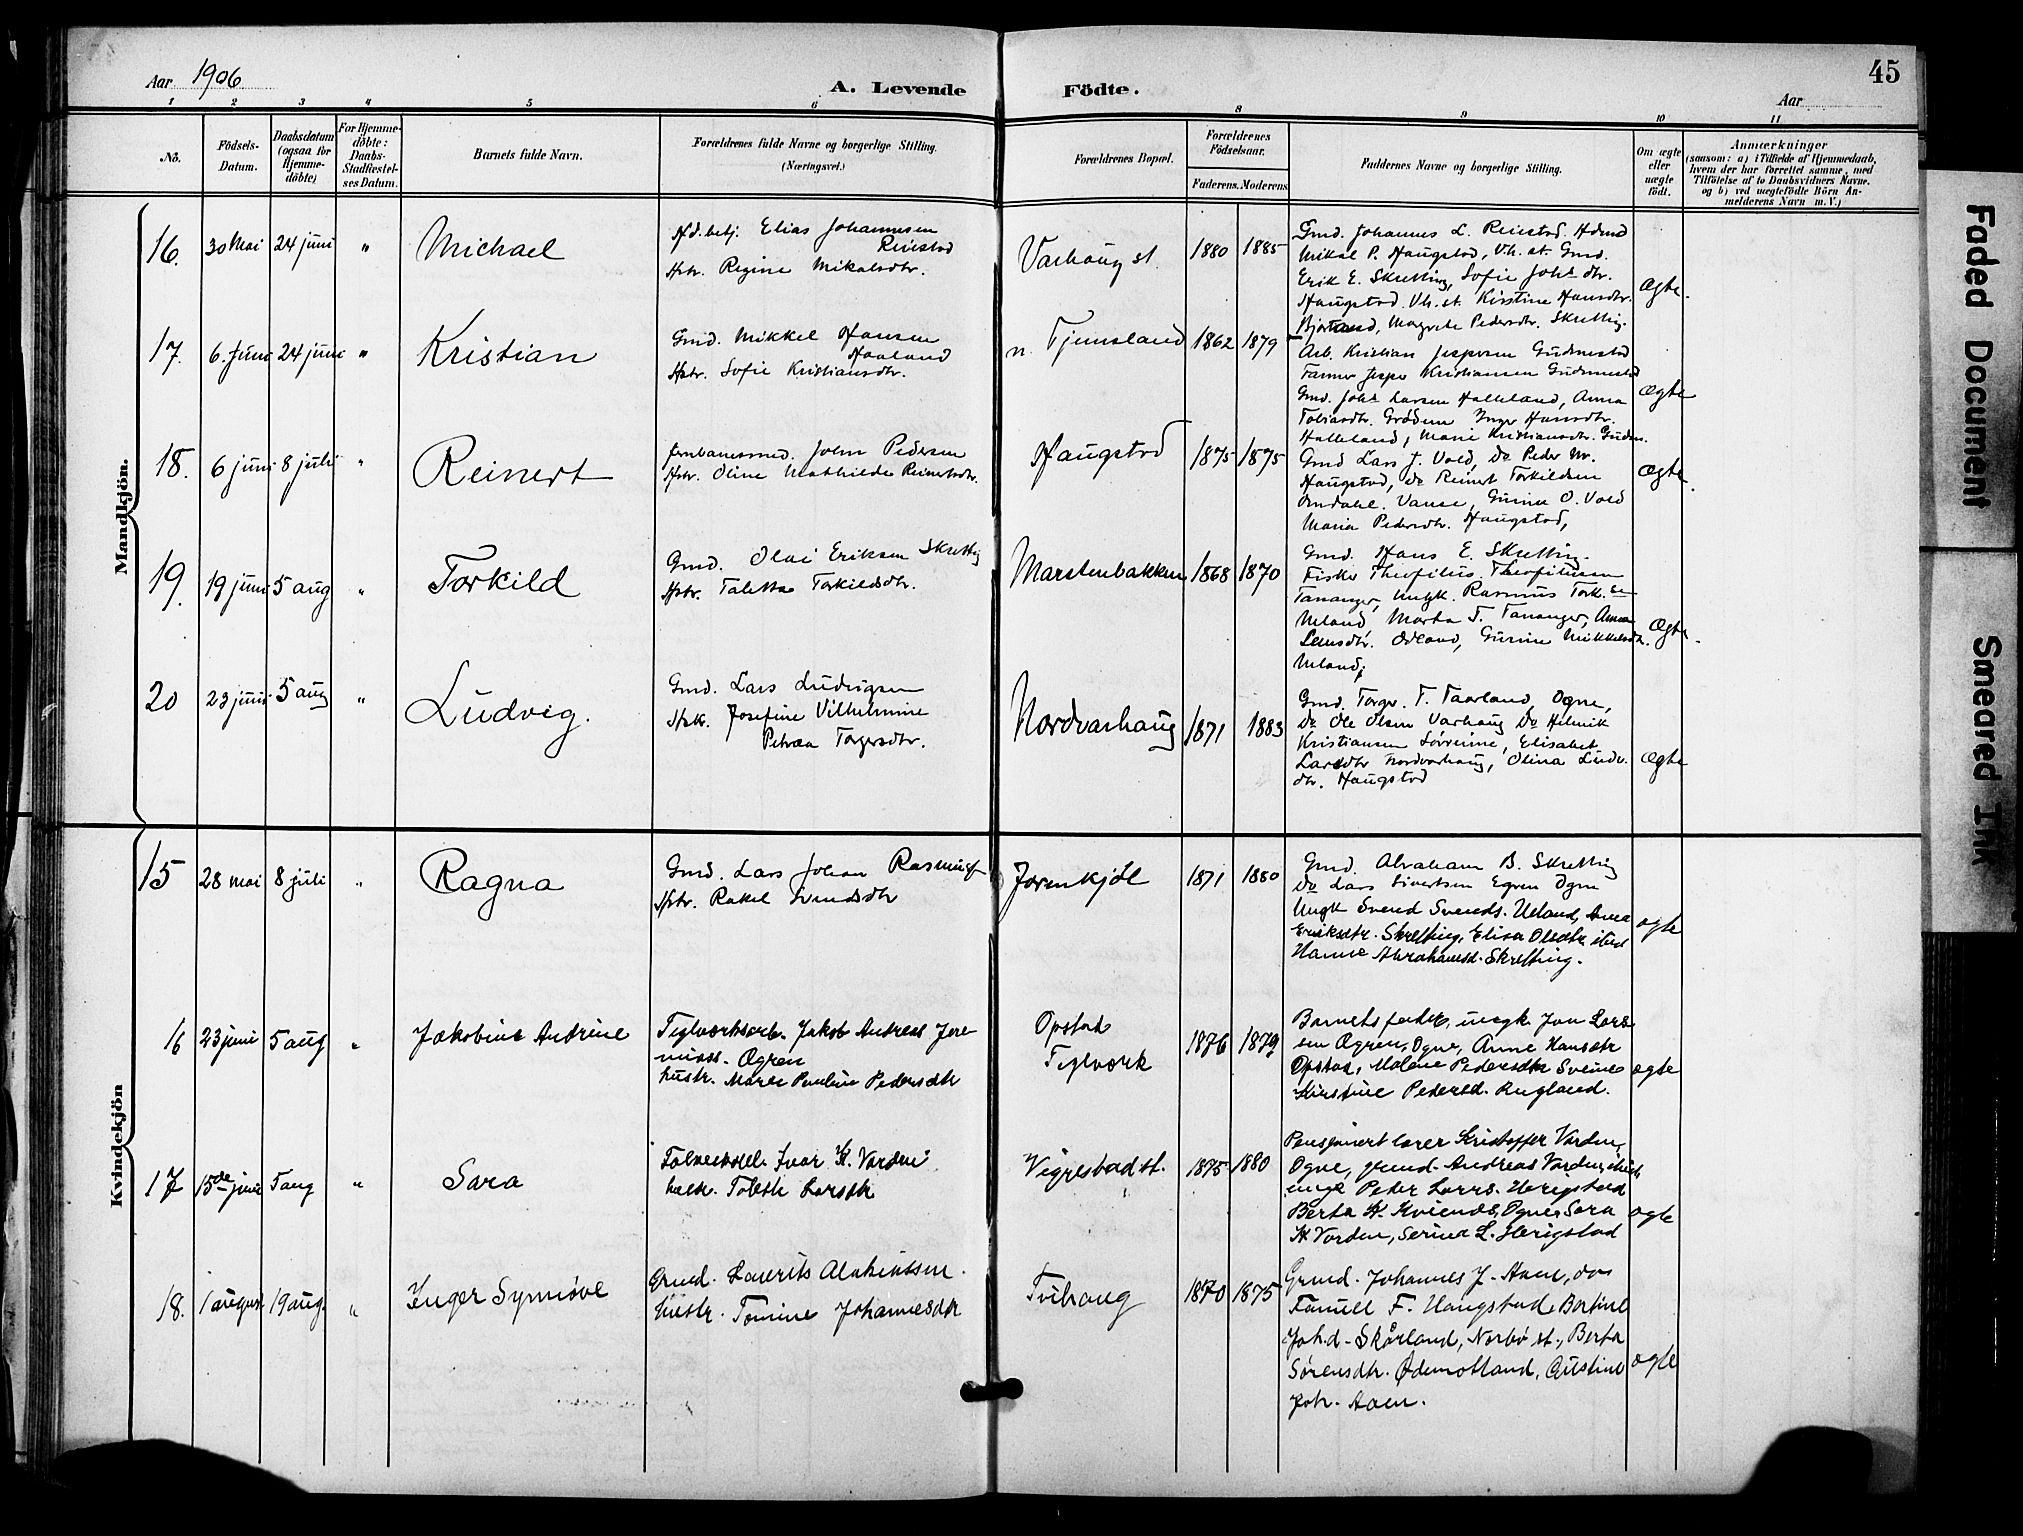 Aar 1906
A. Levende Födte.
45
Aar
1 2 3 4 5 6 8 9 10 11
No.
Födsels-Datum.
Daabsdatum (ogsaa for Hjemme-döbte)
For Hjemme-döbte: Daabs-Stadfæstel-ses Datum.
Barnets fulde Navn.
Forældrenes fulde Navne og borgerlige Stilling.
(Næringsvei.)
Forældrenes Bopæl.
Forældrenes Födselsaar.
Faderens. Moderens.
Faddernes Navne og borgerlige Stilling.
Om ægte eller uægte födt.
Anmærkninger
(saasom: a) i Tilfælde af Hjemmedaab,
hvem der har forrettet samme, med
Tilföielse af to Daabsvidners Navne.
og b) ved uægtefödte Börn An-
melderens Navn m. V.)
Mandkjön.
16. 30 Mai 24 juni " Michael
Elias Johannesen
Reiestad
Hstr. Regine Mikalsdtr.
Varhaug st. 1880 1885
Gmd. Johannes L. Reiestad.
Mikal P. Haugstad, Vh. st. Gmd.
Erik E. Skretting, Sofie Johs dtr.
Haugstad Vh. st. Kirstine Hansdtr.
Bjorland, Margrete Pedersdtr. Skretting.
Ægte.
17. 6. Juni 24 juni " Kristian
Gmd. Mikkel Hansen
Haaland
Hstr. Sofie Kristiansdtr.
n. Tjemsland 1862 1879
Arb. Kristian Jespersen Gudmestad
Farmer Jesper Kristiansen Gudmestad
Gmd. Johs Larsen Halleland, Anna
Tobiasdtr. Grødem Inger Hansdtr.
Halleland, Marie Kristiansdtr. Gudm.
Ægte
18. 6 juni 8 juli " Reinert
Jernbanesmed. John Pedersen
Hstr. Oline Mathilde Reinertsdtr.
Haugstad 1875 1875
Gmd Lars J. Vold, Do Peder
Haugstad, Do Reinert Torkildsen
Omdahl. Vanse, Gurine O. Vold
Maria Pedersdtr. Haugstad,
Ægte.
19. 19 juni 5 aug " Torkild
Gmd. Olai Eriksen Skretting
Hstr. Taletta Torkildsdtr.
Marstenbakken 1868 1870
Gmd. Hans E. Skretting.
Fisker Theofilius Theofiliusen
Tananger, Ungk. Rasmus Tork.sen
Ueland, Marta T. Tananger, Anna
Odland, Gurine Mikkelsdtr.
Ueland,
Ægte.
20 23 juni 5 aug " Ludvig.
Gmd. Lars Ludvigsen
Hstr. Josefine Vilhelmine
Petræa Torgersdtr.
Nordvarhaug 1871 1883
Gmd. Torger. T. Taarland, Ogne,
Do Ole Olsen Varhaug Do Helmik
Kristiansen Sørreime, Elisabet
Larsdtr Nordvarhaug, Olina Ludv.
dtr. Haugstad
Ægte
Kvindekjön
15 28 mai 8 juli " Ragna
Gmd. Lars Johan Rasmus
Hstr. Rakel Svendsdtr
Jorenkjöl 1871 1880
Gmd. Abraham B. Skretting
Do Lars Sivertsen Egren Ogne
Ungk Svend Svends. Ueland, Anna
Eriksdtr. Skretting, Elisa Olsdtr
Hanne Abrahamsd. Skretting.
ægte
16 23 juni 5 aug " Jakobine Andrine
Teglværksarb. Jakob Andreas Jere-
miass. Ogren
hustr. Maren Pauline Pedersdtr
Opstad
Teglværk
1876 1879
Barnets fader, ungk. Jon Lars-
sen Ogren, Ogne, Anne Hansdtr
Opstad, Malene Pedersdtr Sveine
Kirstine Pedersd. Rugland.
ægte
17 15de juni 5 aug " Sara
Ivar K. Varden
hustr. Taleth Larsdtr
Vigrestad st. 1875 1880
Pensjonert lærer Kristoffer Varden,
Ogne, gmd. Andreas Varden,
ungk Peder Larss. Herigstad
Berta K. Kvienes, Ogne, Sara
K Varden, Serina L. Herigstad
ægte
18. 1 august 19 aug. " Inger Synnöve
Grmd. Laurits
Hustr. Tomine Johannesdtr
Tvihaug 1870 1875
Grmd. Johannes J. Aaen, do
F. Haugstad, Bertine
Joh.d. Skårland, Nærbø st., Berta
Sörensdtr. Ødemotland, Gustine
Joh. Aaen.
ægte
Faded Document
Smeared Ink